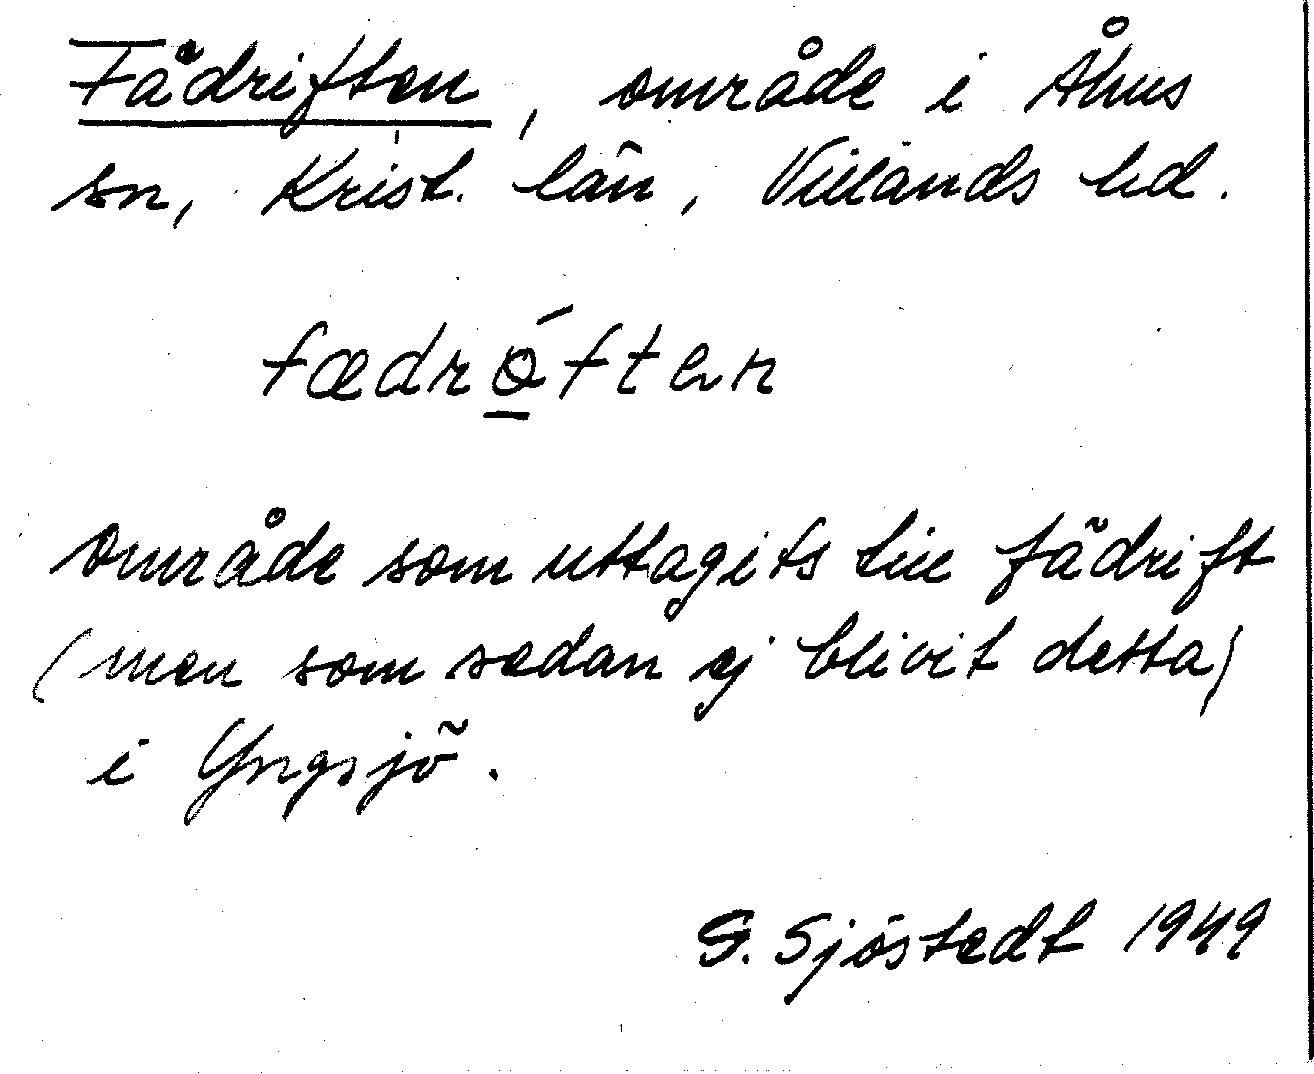 Fädriften, område i Åhus
sn, Krist. län, Villands hd.
fædrǿ̱ften
Område som uttagits till fädrift
(men som sedan ej blivit detta)
i Yngsjö.
G. Sjöstedt 1949